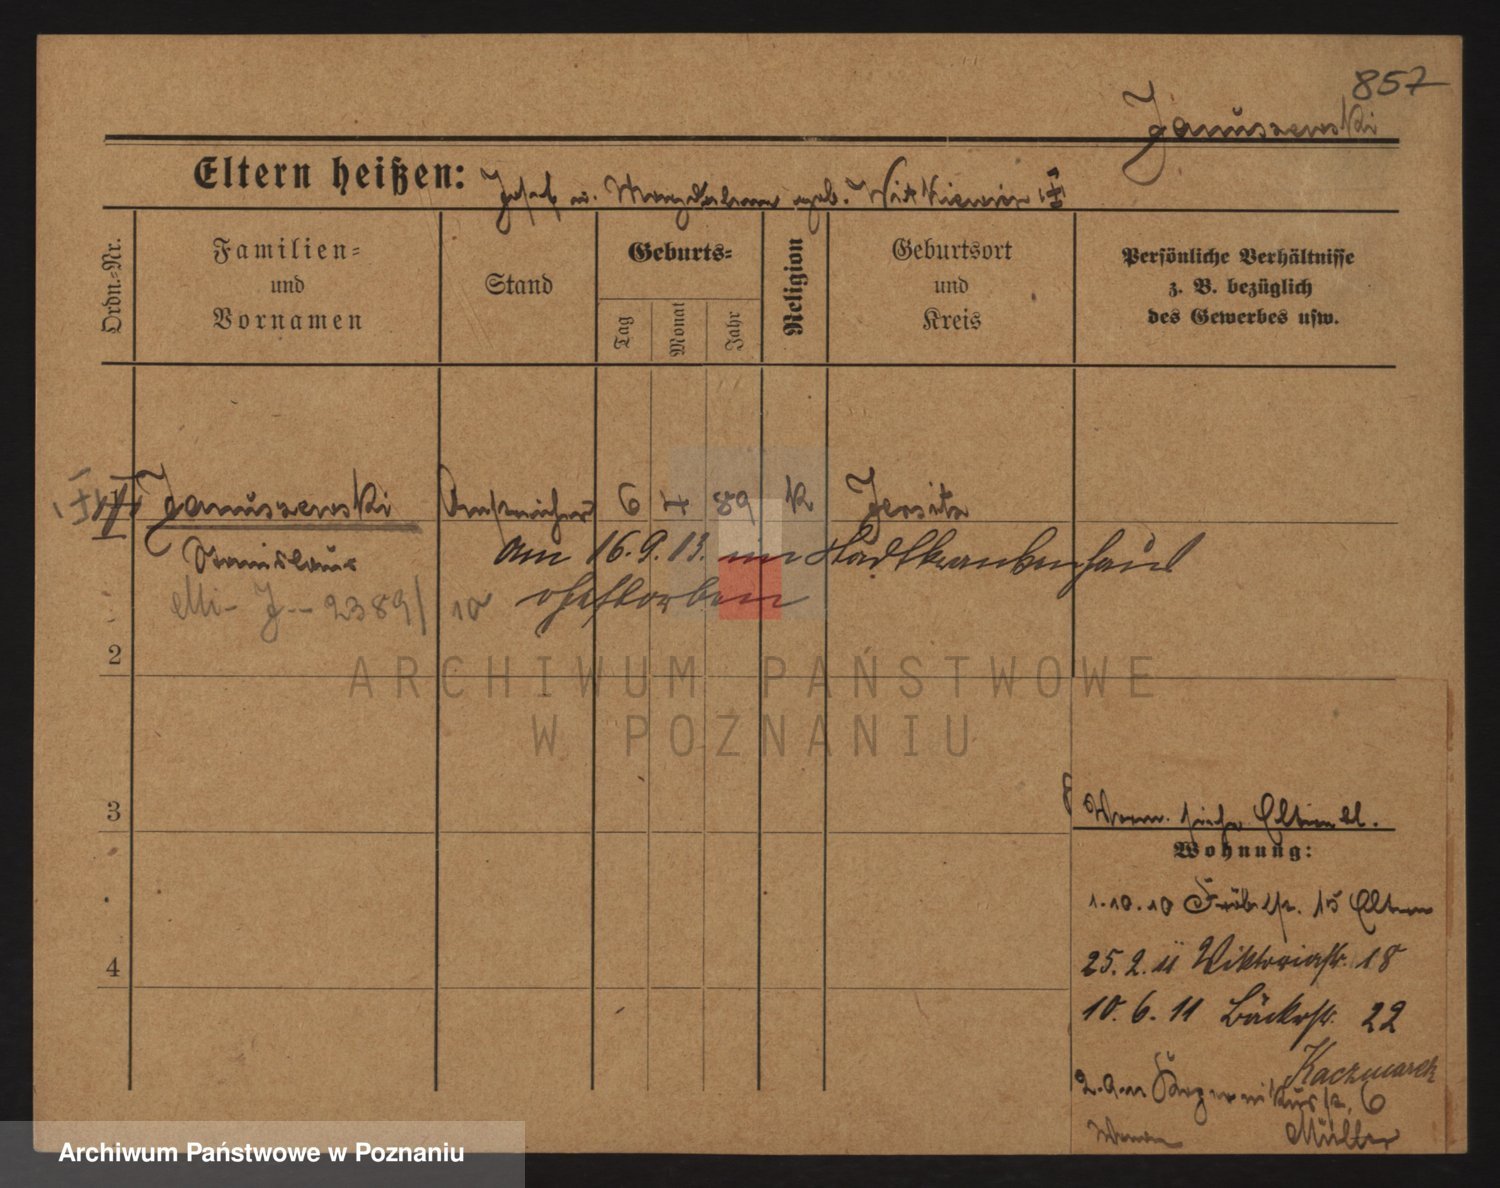 857
Januszewski
Eltern heißen: Josef u. Magdalena geb. Witkiewicz
Ordn.-Nr.
Familien-
und
Vornamen
Stand
Geburts-
Tag
Monat
Jahr
Religion
Geburtsort
und
Kreis
Persönliche Verhältnisse
z. B. bezüglich
des Gewerbes usw.
Januszewski Anstreicher 6 4 89 k Jersitz
Stanislaus
am 16.9.13. im Stadtkrankenhause
gestorben
J 2389/10
2
3
4
Vorm. siehe Elternbl.
Wohnung:
1.10.10 15 Eltern
25.2.11 Viktoriastr. 18
10.6.11 Bäckerstr. 22
Kaczmarek
6
Müller
ARCHIWUM PAŃSTWOWE
W POZNANIU
Archiwum Państwowe w Poznaniu